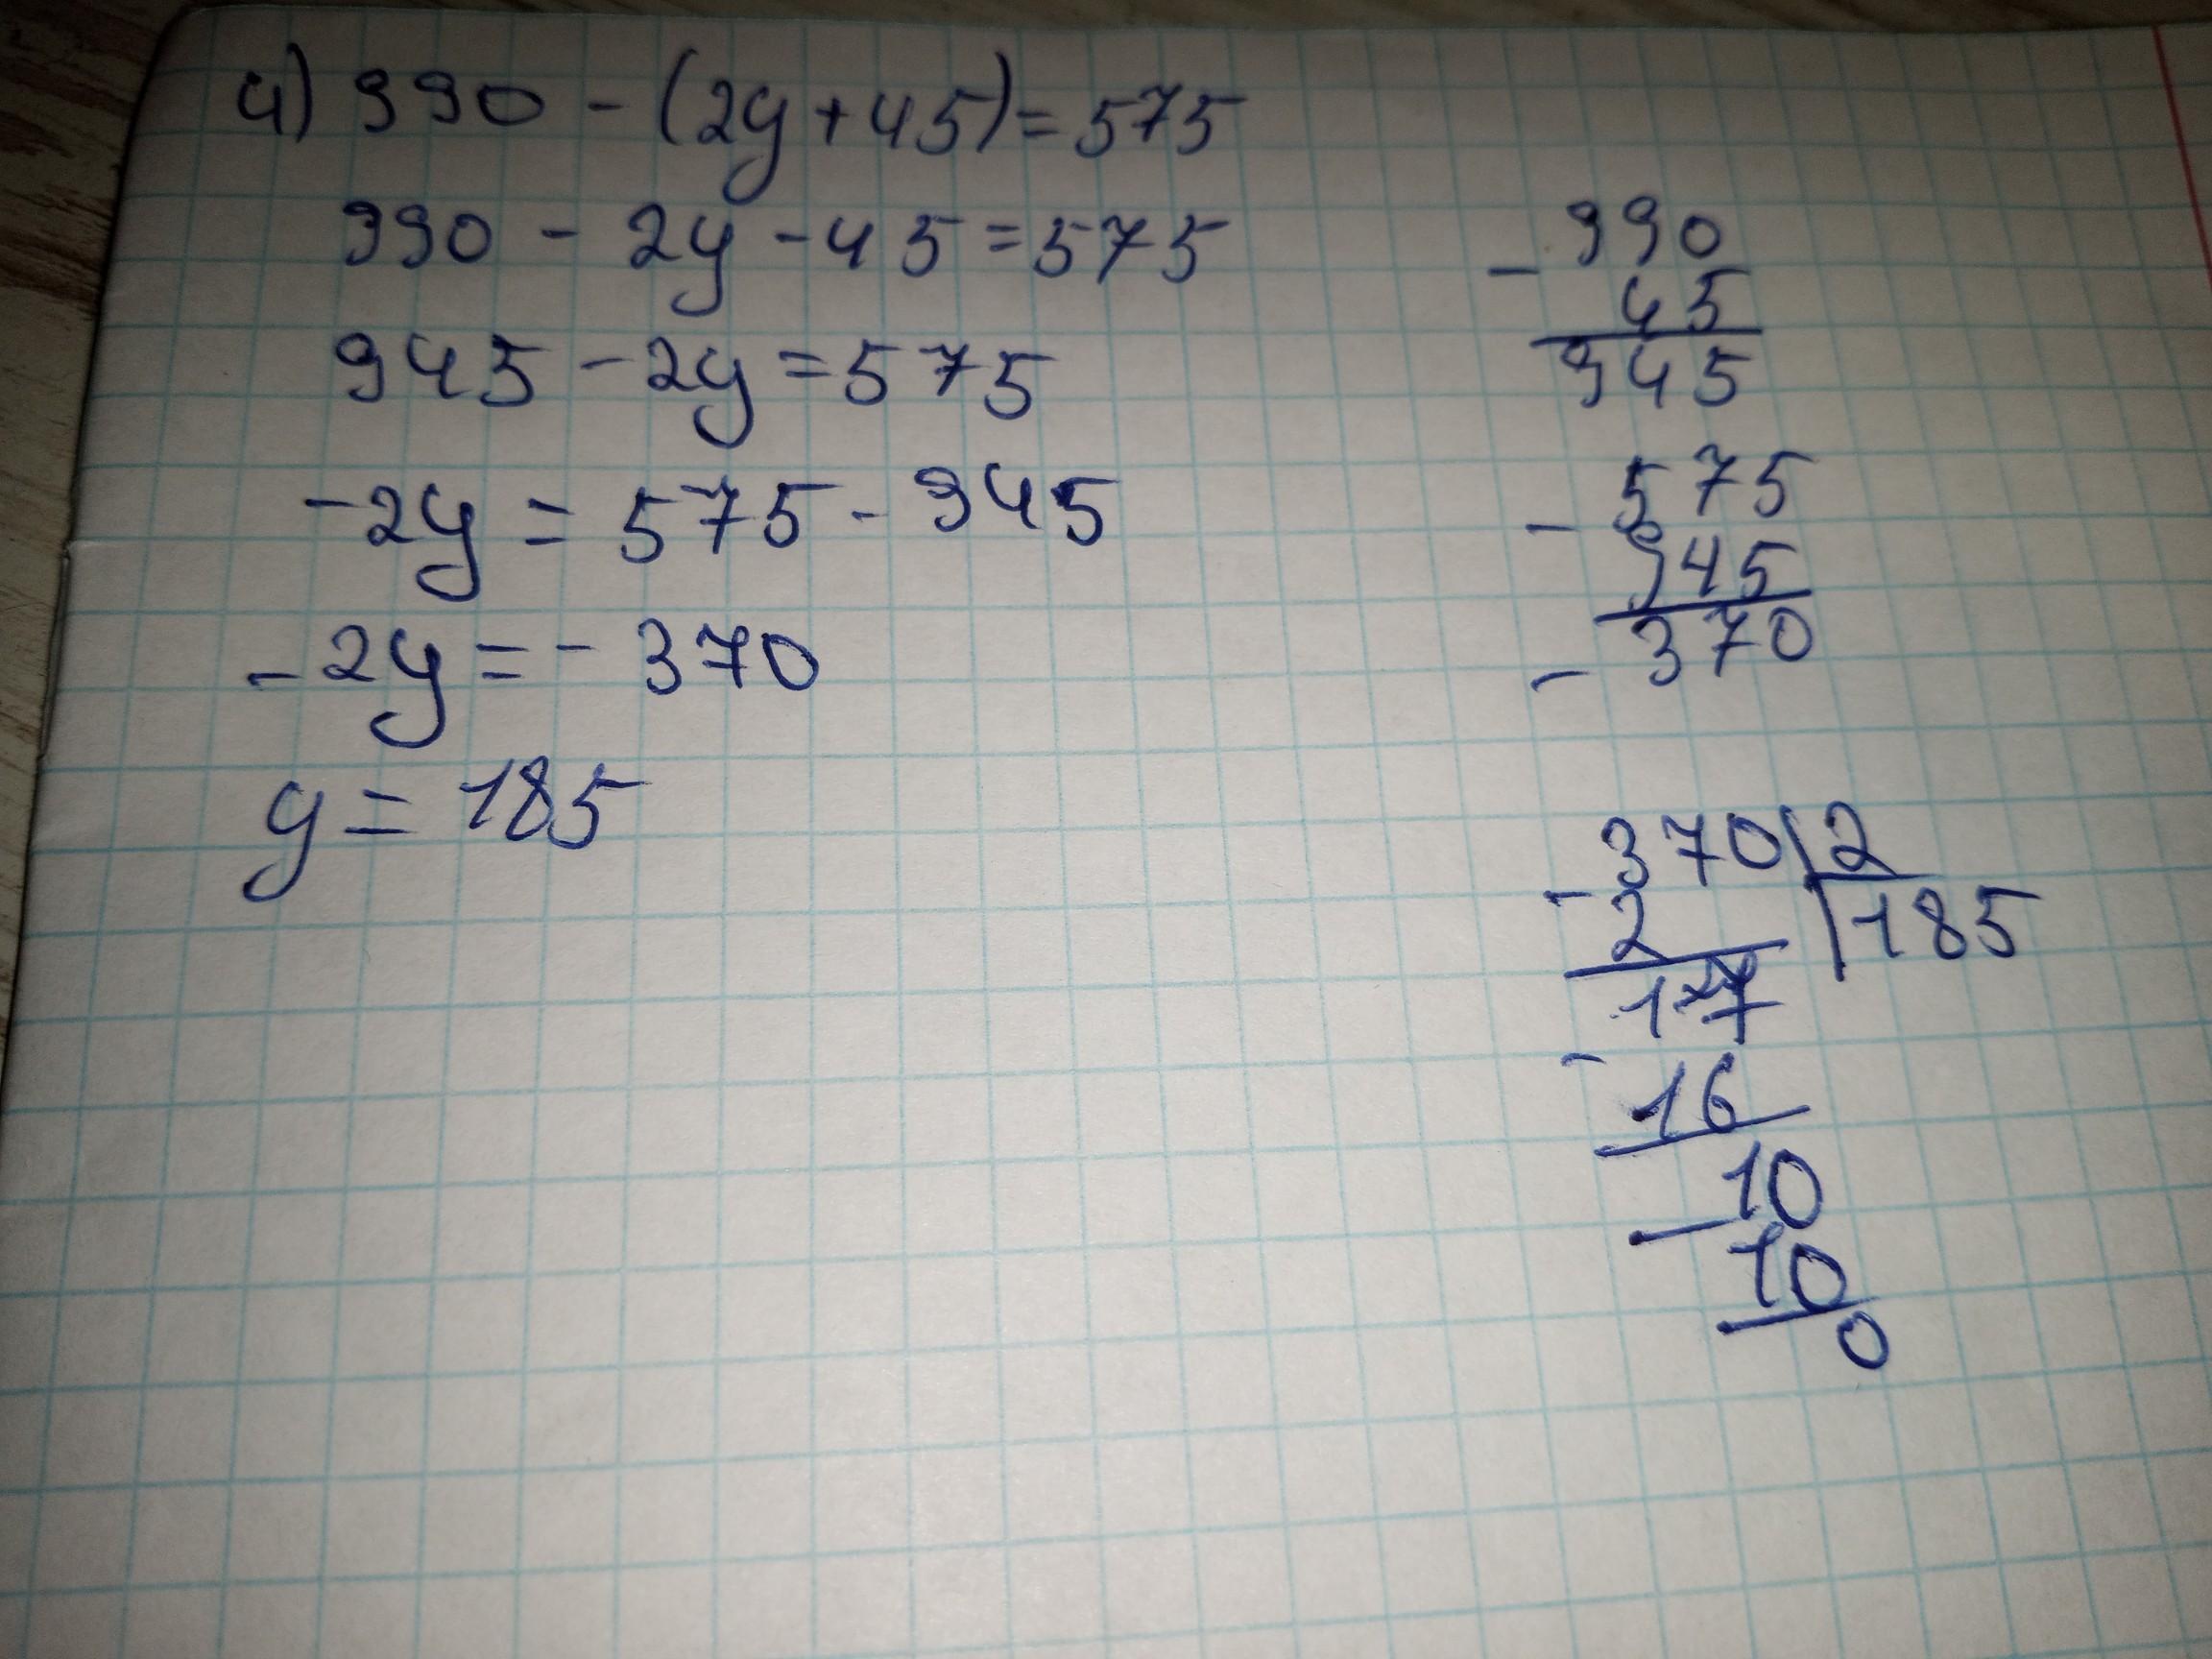 4) 990 - (2y + 45) = 575
990 - 2y - 45 = 575
945 - 2y = 575
-2y = 575 - 945
-2y = - 370
y = 185
- 990
45
945
- 575
945
- 370
- 370 2
2 185
17
- 16
10
- 10
0